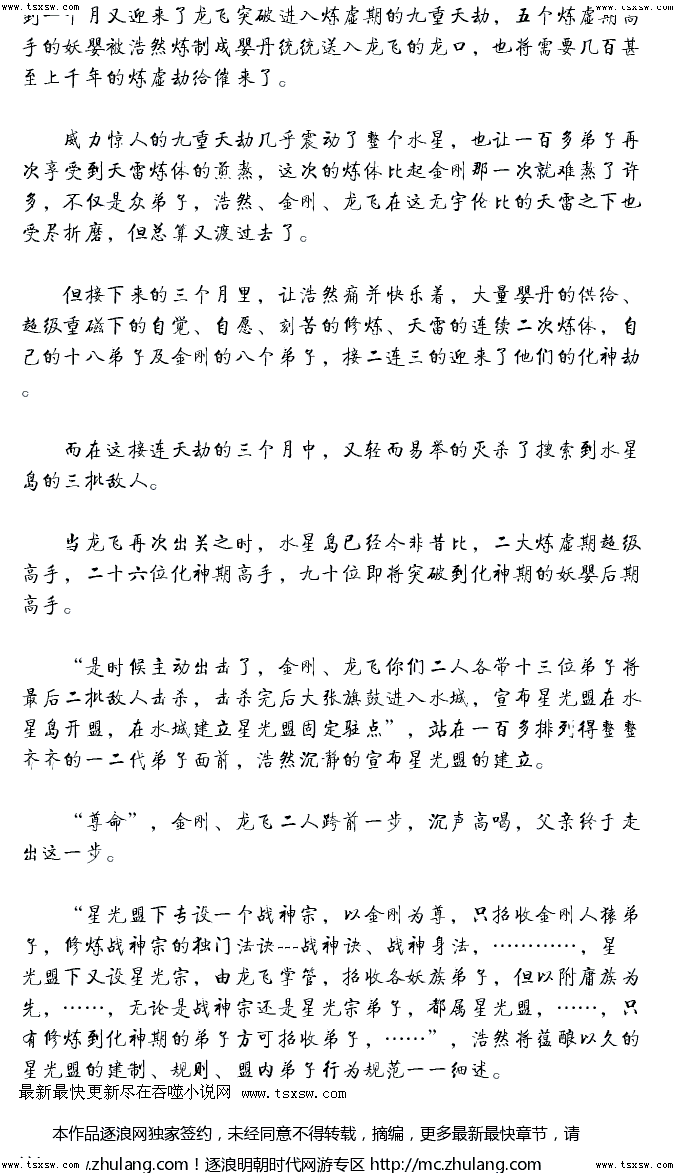 www.tsxsw.com www.tsxsw.com www.tsxsw.com
到一个月又迎来了龙飞突破进入炼虚期的九重天劫，五个炼虚期高
手的妖婴被浩然炼制成婴丹统统送入龙飞的龙口，也将需要几百甚
至上千年的炼虚劫给催来了。
威力惊人的九重天劫几乎震动了整个水星，也让一百多弟子再
次享受到天雷炼体的煎熬，这次的炼体比起金刚那一次就难熬了许
多，不仅是众弟子，浩然、金刚、龙飞在这无宇伦比的天雷之下也
受尽折磨，但总算又渡过去了。
但接下来的三个月里，让浩然痛并快乐着，大量婴丹的供给、
超级重磁下的自觉、自愿、刻苦的修炼、天雷的连续二次炼体，自
己的十八弟子及金刚的八个弟子，接二连三的迎来了他们的化神劫
。
而在这接连天劫的三个月中，又轻而易举的灭杀了搜索到水星
岛的三批敌人。
当龙飞再次出关之时，水星岛已经今非昔比，二大炼虚期超级
高手，二十六位化神期高手，九十位即将突破到化神期的妖婴后期
高手。
“是时候主动出击了，金刚、龙飞你们二人各带十三位弟子将
最后二批敌人击杀，击杀完后大张旗鼓进入水城，宣布星光盟在水
星岛开盟，在水城建立星光盟固定驻点”，站在一百多排列得整整
齐齐的一二代弟子面前，浩然沉静的宣布星光盟的建立。
“尊命”，金刚、龙飞二人跨前一步，沉声高喝，父亲终于走
出这一步。
“星光盟下专设一个战神宗，以金刚为尊，只招收金刚人猿弟
子，修炼战神宗的独门法诀---战神诀、战神身法，…………，星
光盟下又设星光宗，由龙飞掌管，招收各妖族弟子，但以附庸族为
先，……，无论是战神宗还是星光宗弟子，都属星光盟，……，只
有修炼到化神期的弟子方可招收弟子，……”，浩然将蕴酿以久的
星光盟的建制、规则、盟内弟子行为规范一一细述。
最新最快更新尽在吞噬小说网 www.tsxsw.com
本作品逐浪网独家签约，未经同意不得转载，摘编，更多最新最快章节，请
.zhulang.com！逐浪明朝时代网游专区 http://mc.zhulang.com
www.tsxsw.com www.tsxsw.com www.tsxsw.com